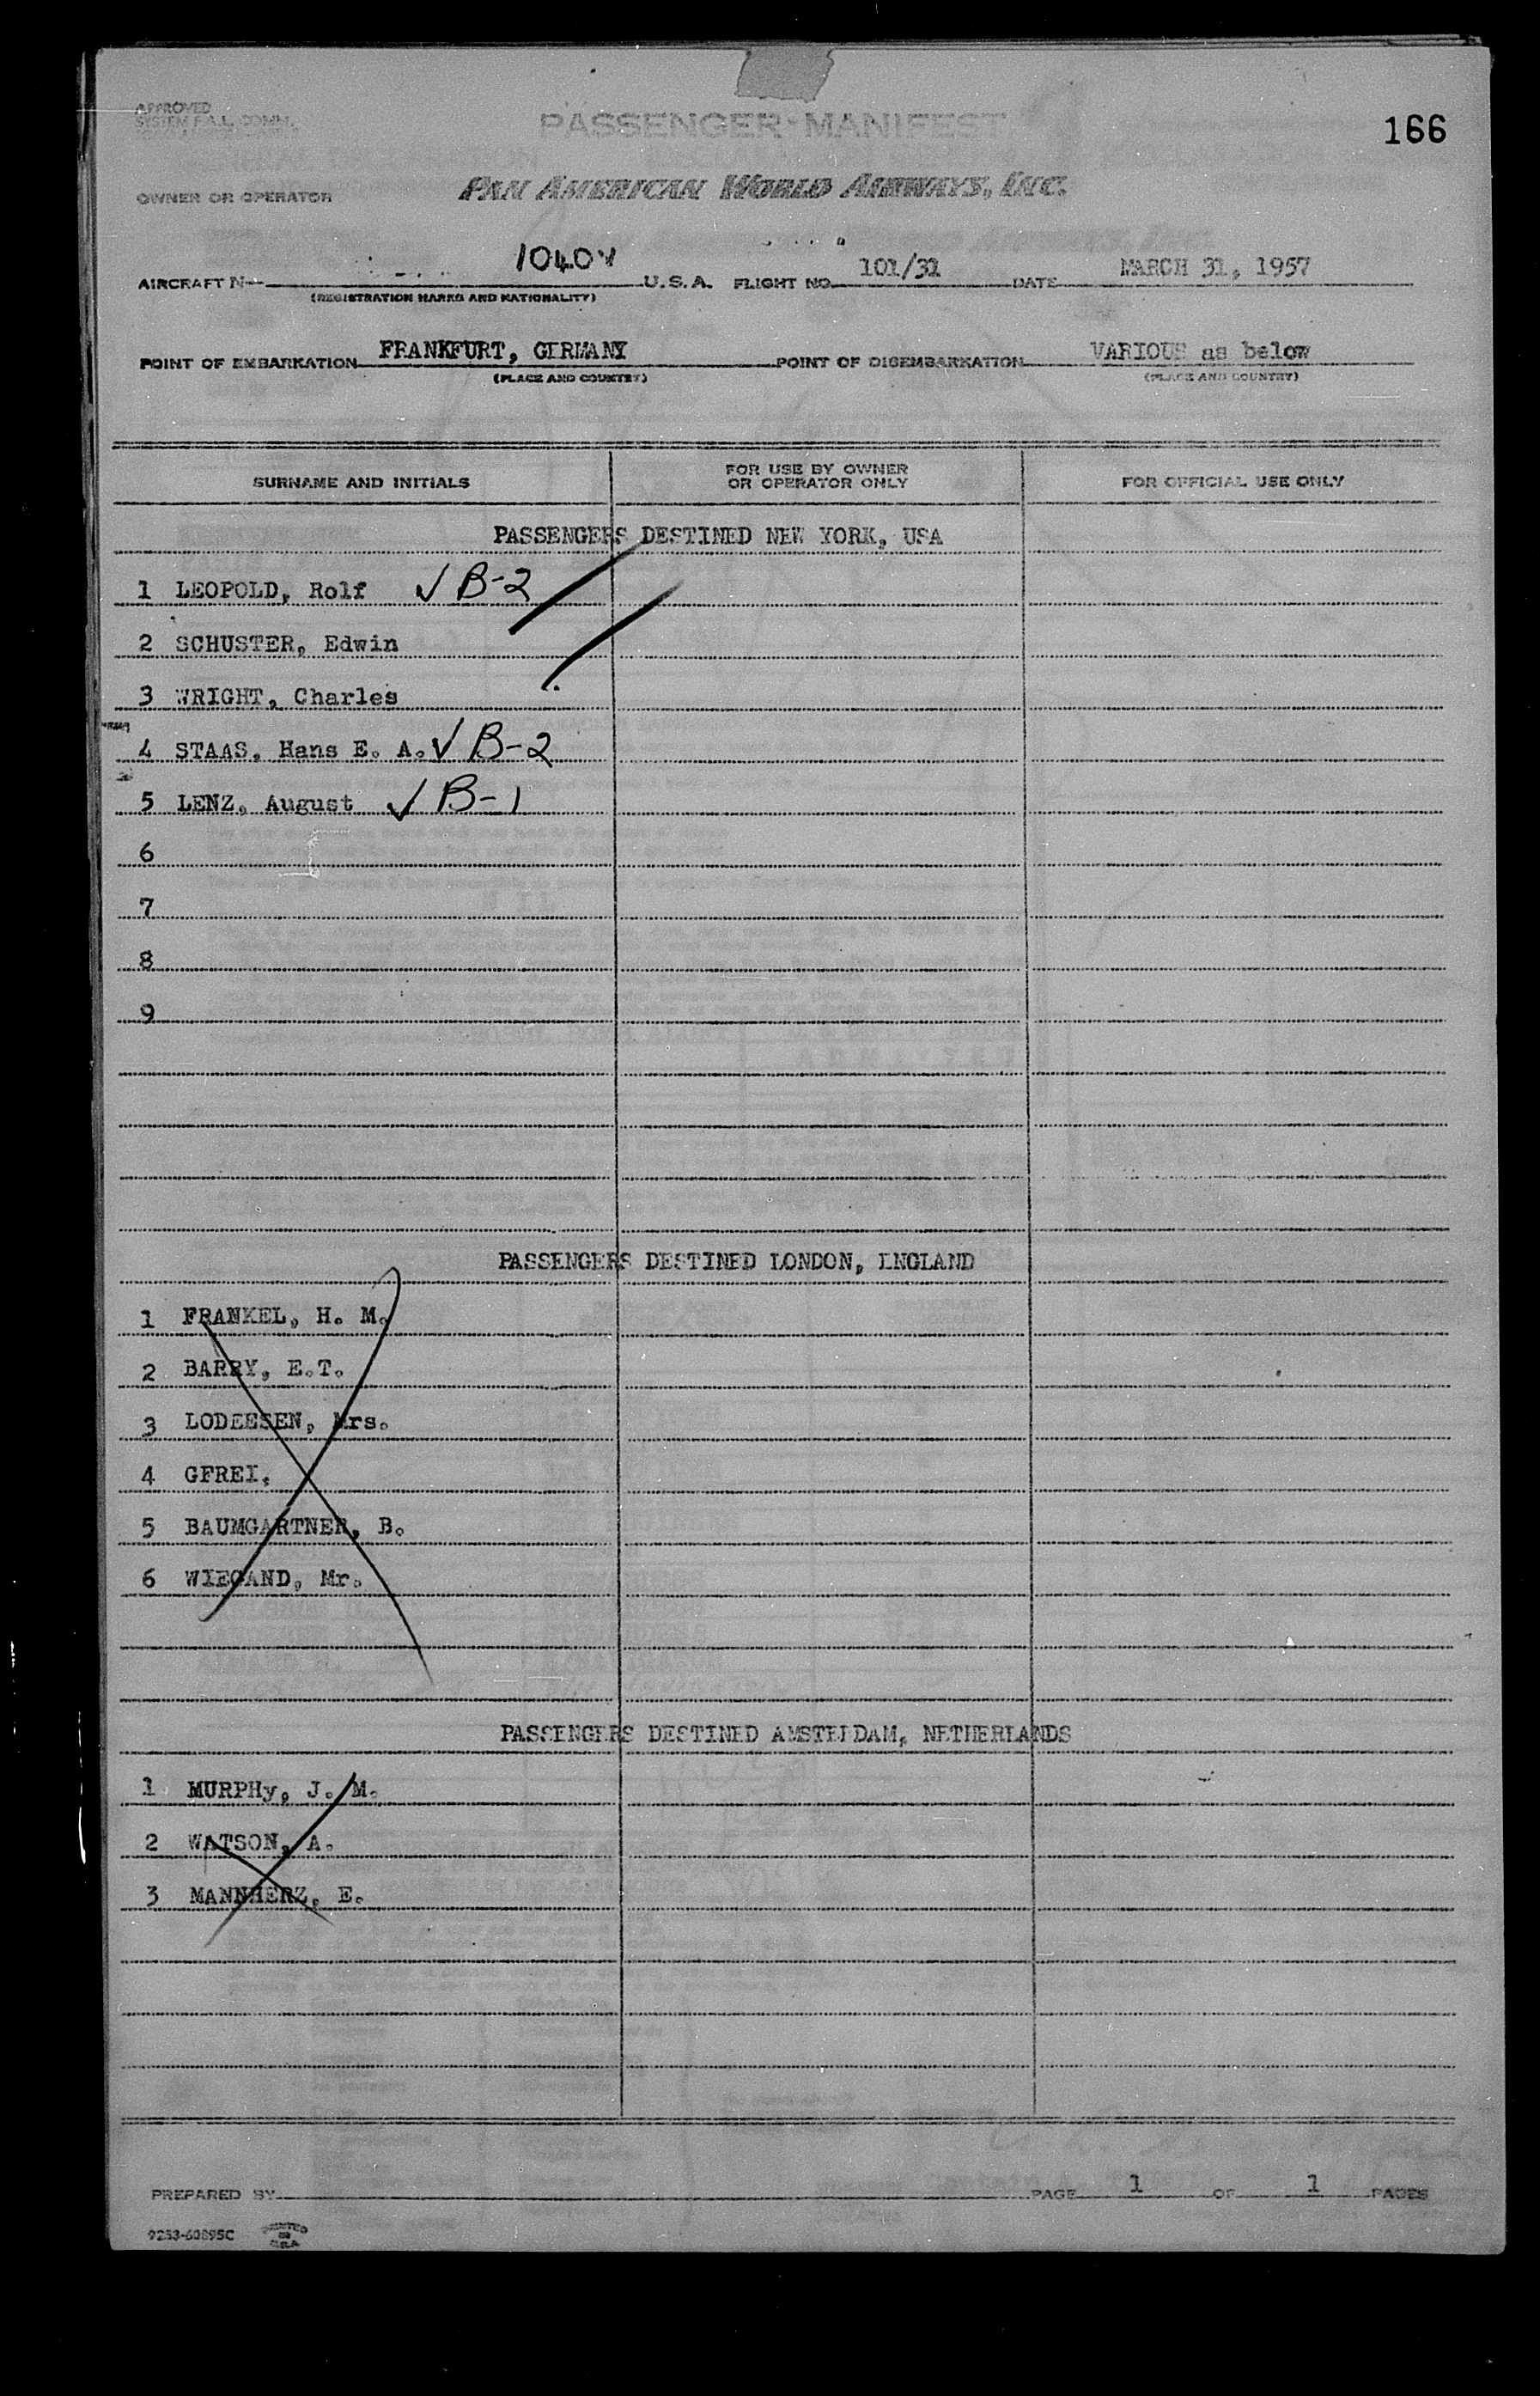 APPROVED
SYSTEM F.A.L. COMM.
PASSENGER MANIFEST
166
OWNER OR OPERATOR PAN AMERICAN WORLD AIRWAYS, INC.
AIRCRAFT N 1040V U.S.A. FLIGHT NO. 101/31 DATE MARCH 31, 1957
(REGISTRATION MARKS AND NATIONALITY)
POINT OF EMBARKATION FRANKFURT, GERMANY POINT OF DISEMBARKATION VARIOUS as below
(PLACE AND COUNTRY) (PLACE AND COUNTRY)
SURNAME AND INITIALS FOR USE BY OWNER OR OPERATOR ONLY FOR OFFICIAL USE ONLY
PASSENGERS DESTINED NEW YORK, USA
1 LEOPOLD, Rolf ✓ B-2
2 SCHUSTER, Edwin
3 WRIGHT, Charles
4 STAAS, Hans E. A. ✓ B-2
5 LENZ, August ✓ B-1
6
7
8
9
PASSENGERS DESTINED LONDON, ENGLAND
1 FRANKEL, H. M.
2 BARRY, E.T.
3 LODEESEN, Mrs.
4 GFREI,
5 BAUMGARTNER, B.
6 WIEGAND, Mr.
PASSENGERS DESTINED AMSTERDAM, NETHERLANDS
1 MURPHy, J. M.
2 WATSON, A.
3 MANNHERZ, E.
PREPARED BY PAGE 1 OF 1 PAGES
9253-60895C PRINTED IN U.S.A.